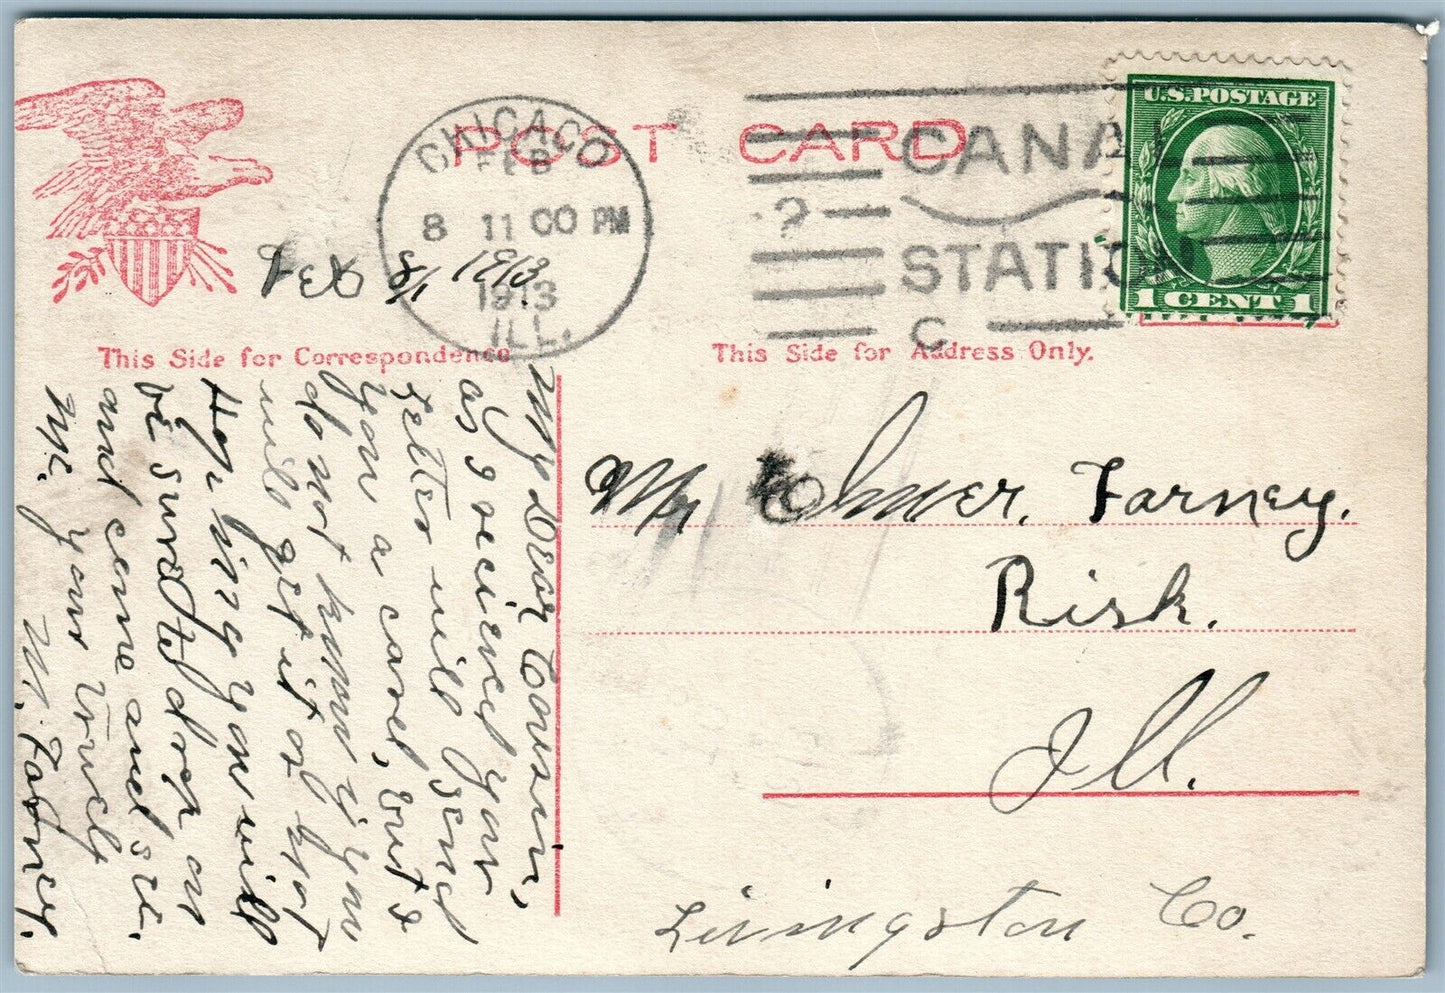 POST CARD
CHICAGO
FEB
8 11 00 PM
1913
ILL.
CANAL
STATION
C
U.S.POSTAGE
1 CENT 1
2/8/1913.
This Side for Correspondence
This Side for Address Only.
My Dear Cousin,
as I recieved your
letter will send
you a card, but I
do not know if you
will get it or not
Hoping you will
be sure to drop on
and come and see
me. your truely
M. Farney.
Mr Elmer. Farney.
Risk.
Ill.
Livingston Co.